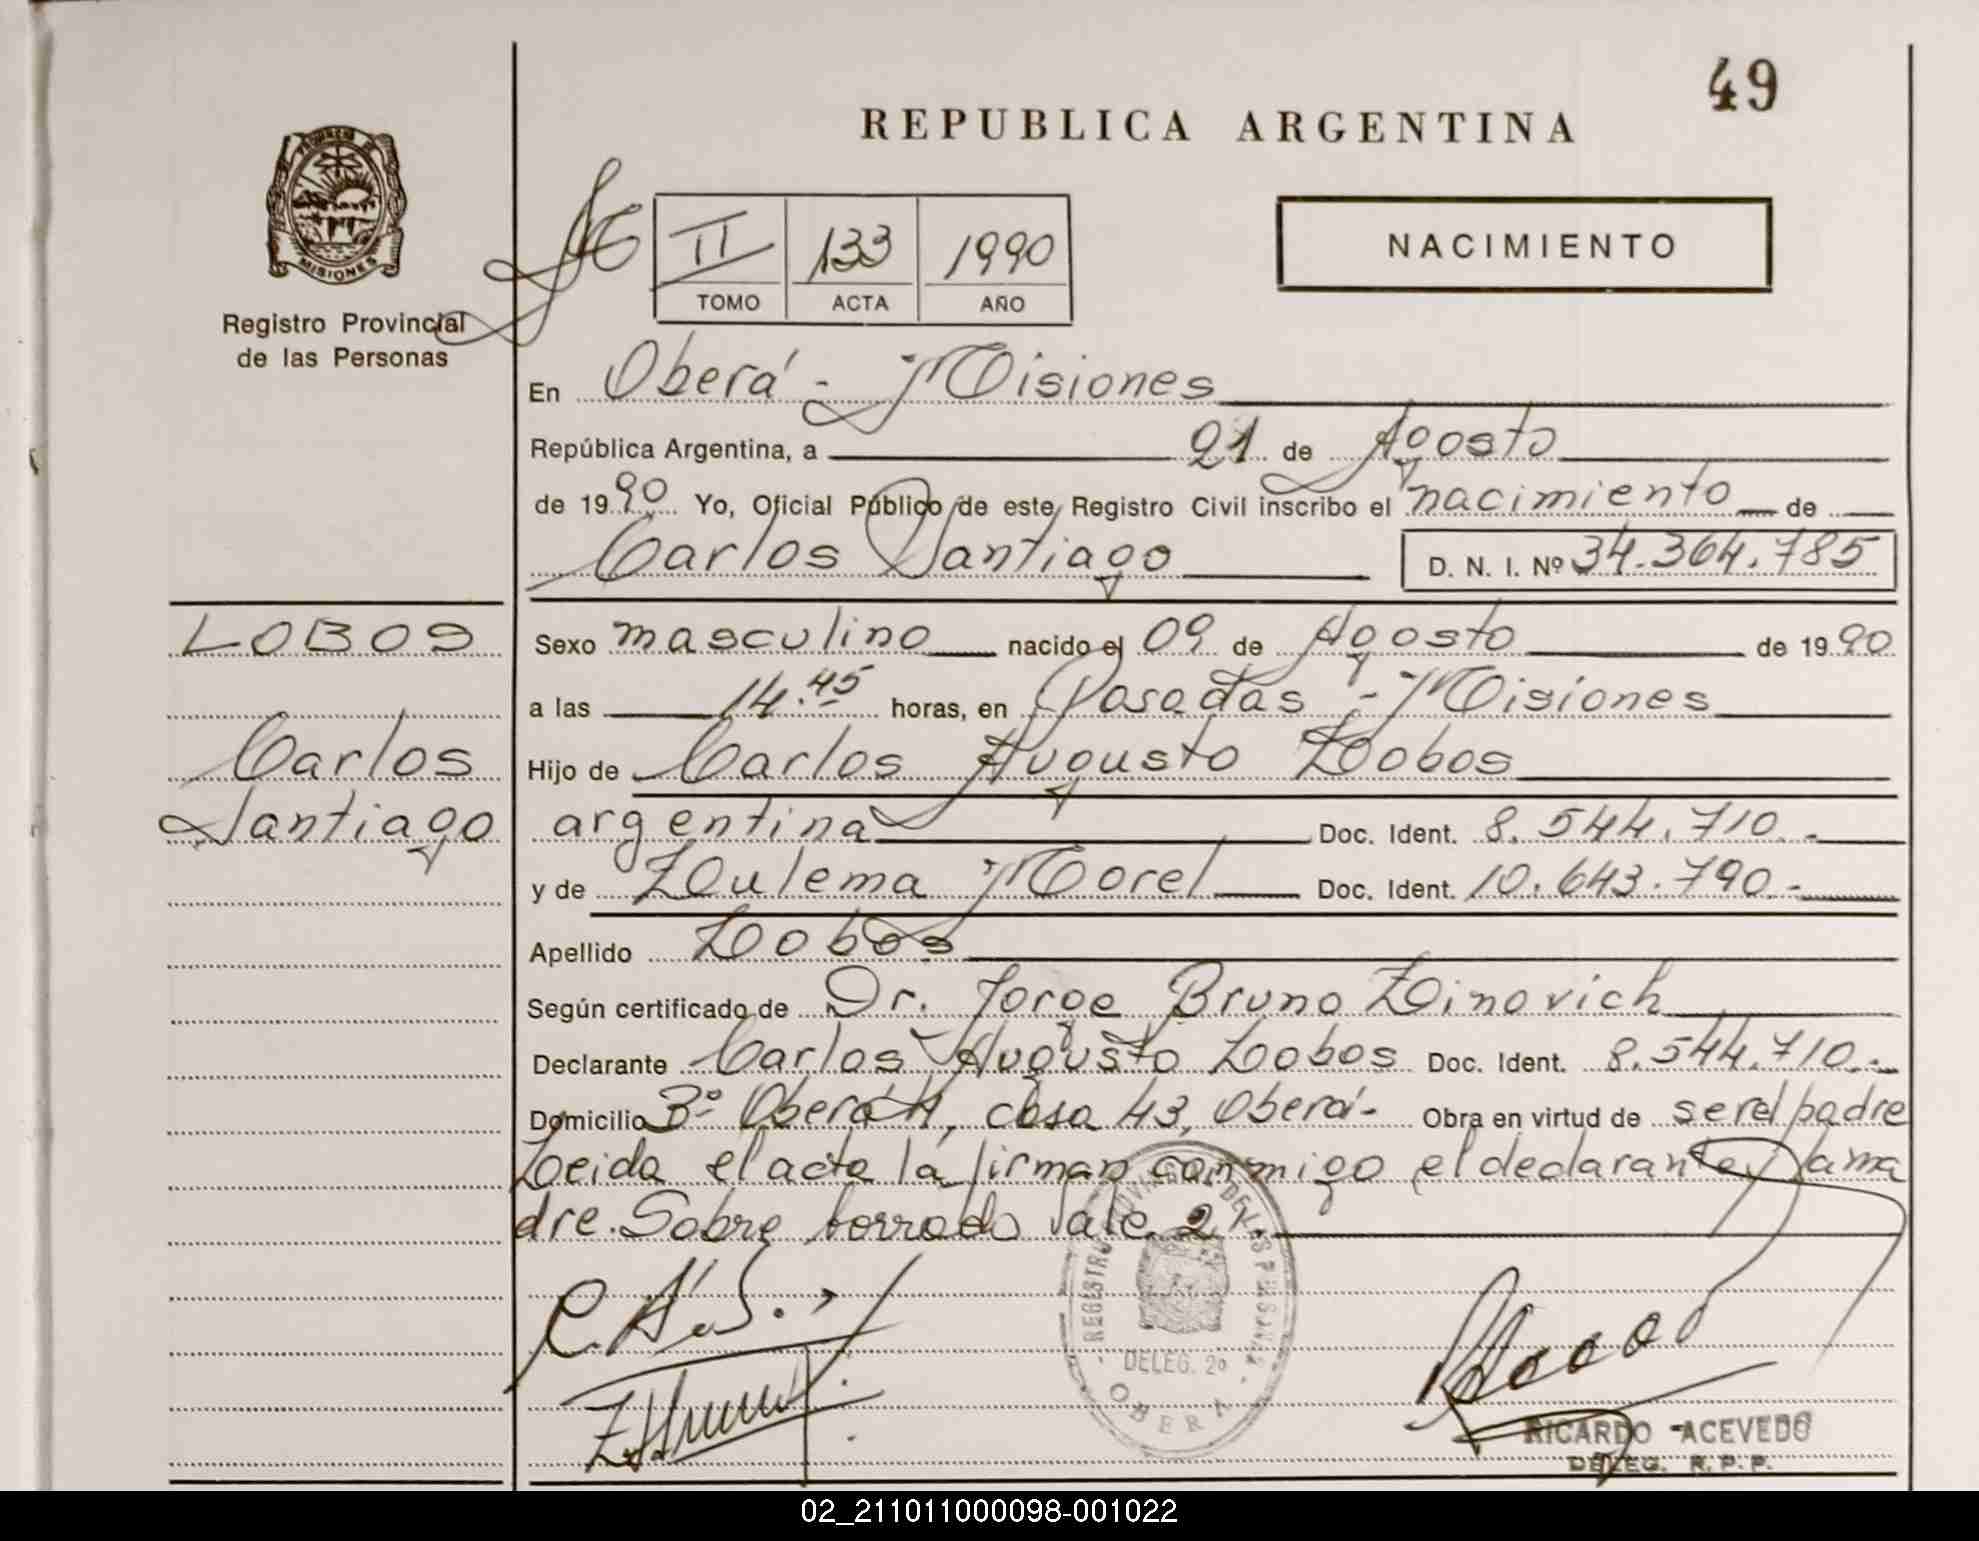 49
REPUBLICA ARGENTINA
PROVINCIA DE
MISIONES
Registro Provincial
de las Personas
II 133 1990
TOMO ACTA AÑO
NACIMIENTO
En Oberá - Misiones
República Argentina, a 21 de Agosto
de 1990 Yo, Oficial Público de este Registro Civil inscribo el nacimiento de
Carlos Santiago D. N. I. Nº 34.364.785
LOBOS
Carlos
Santiago
Sexo masculino nacido el 09 de Agosto de 1990
a las 14.45 horas, en Posadas - Misiones
Hijo de Carlos Augusto Lobos
argentina Doc. Ident. 8.544.710.-
y de Zulema Morel Doc. Ident. 10.643.790.-
Apellido Lobos
Según certificado de Dr. Jorge Bruno Zinovich
Declarante Carlos Augusto Lobos Doc. Ident. 8.544.710.-
Domicilio Bº Oberá II, casa 43, Oberá.- Obra en virtud de ser el padre
Leida el acta la firman conmigo el declarante y la ma
dre. Sobre borrado Vale 21.
REGISTRO PROVINCIAL DE LAS PERSONAS
DELEG. 2º
OBERA
RICARDO ACEVEDO
DELEG. R. P. P.
02_211011000098-001022